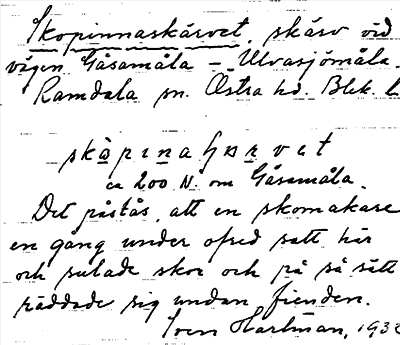 Skopinnaskärvet, skärv vid
vägen Gåsamåla – Ulvasjömåla.
Ramdala sn. Östra hd. Blek. l
skòpɪnaʃærvet
ca 200 N. om Gåsamåla.
Det påstås, att en skomakare
en gång under ofred satt här
och sulade skor och på så sätt
räddade sig undan fienden.
Sven Hartman, 193